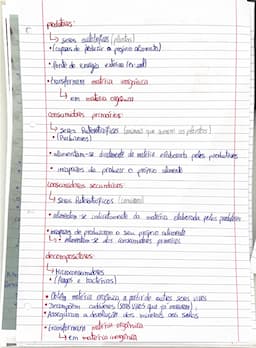 produtores:
↳ seres autotróficos (plantas)
• (capaz de produzir o próprio alimento)
• fonte de energia externa
• transformam matéria inorgânica
↳ em matéria orgânica
consumidores primários:
↳ seres Heterotróficos (animais que comem as plantas)
• (Herbívoros)
• alimentam-se diretamente da matéria elaborada pelos produtores
• incapazes de produzir o próprio alimento
consumidores secundários
↳ seres Heterotróficos (carnívoros)
• alimentam-se indiretamente da matéria elaborada pelos produtores
• incapazes de produzirem o seu próprio alimento
• alimentam-se dos consumidores primários
decompositores:
↳ Microconsumidores
• (fungos e bactérias)
• Obtêm matéria orgânica a partir de outros seres vivos
• Decompõem cadáveres (seres vivos que já morreram)
• Asseguram a devolução dos minerais aos solos
• transformam matéria orgânica
↳ em matéria inorgânica